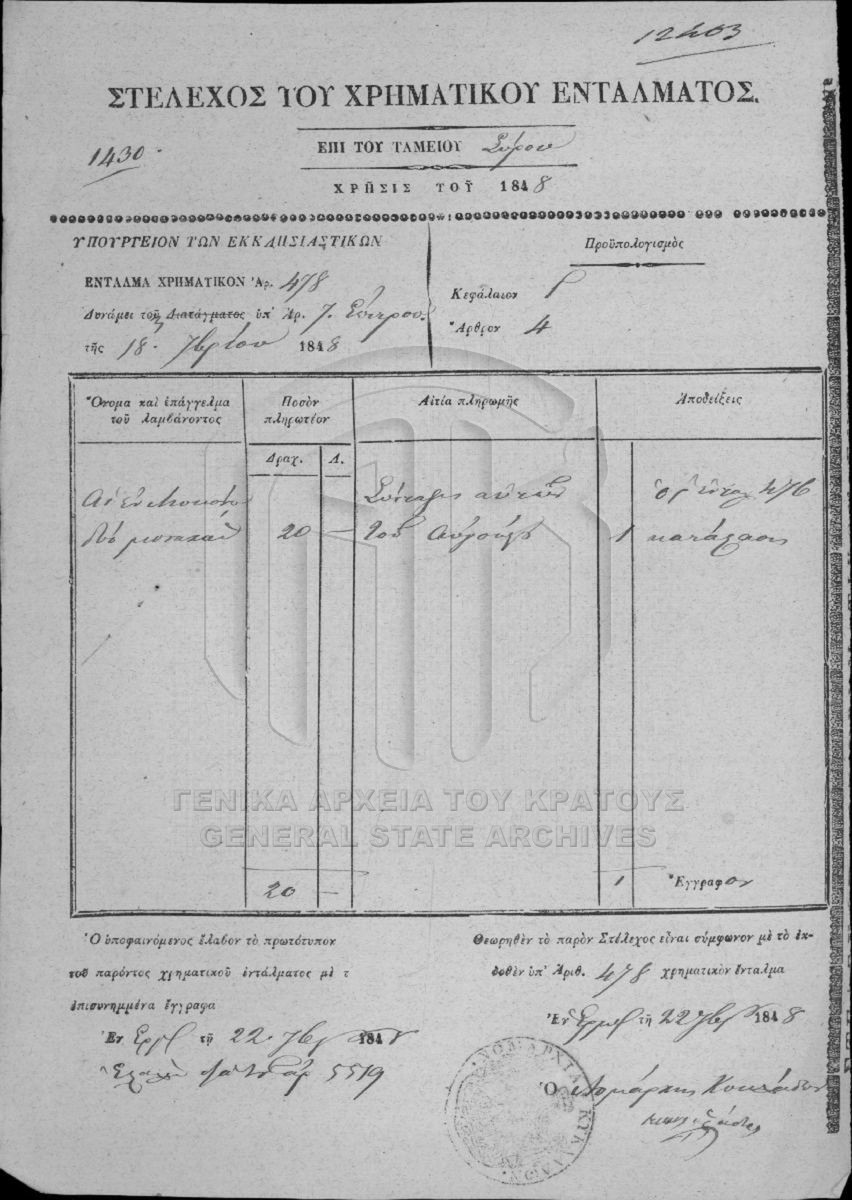 12403
ΣΤΕΛΕΧΟΣ ΤΟΥ ΧΡΗΜΑΤΙΚΟΥ ΕΝΤΑΛΜΑΤΟΣ.
1430
ΕΠΙ ΤΟΥ ΤΑΜΕΙΟΥ Σύρου
ΧΡΗΣΙΣ ΤΟΥ 1848
ΥΠΟΥΡΓΕΙΟΝ ΤΩΝ ΕΚΚΛΗΣΙΑΣΤΙΚΩΝ
ΕΝΤΑΛΜΑ ΧΡΗΜΑΤΙΚΟΝ Ἀρ. 478
Δυνάμει τοῦ Διατάγματος ὑπ' Ἀρ. 7.
τῆς 18 7βρίου 1848
Προϋπολογισμὸς
Κεφάλαιον
Ἄρθρον 4
Ὄνομα καὶ ἐπάγγελμα τοῦ λαμβάνοντος
Ποσὸν πληρωτέον
Αἰτία πληρωμῆς
Ἀποδείξεις
Δραχ. Λ.
476
20 — τοῦ 1 κατάστασις
20 — 1 Ἔγγραφον
ΓΕΝΙΚΑ ΑΡΧΕΙΑ ΤΟΥ ΚΡΑΤΟΥΣ
GENERAL STATE ARCHIVES
Ὁ ὑποφαινόμενος ἔλαβον τὸ πρωτότυπον
τοῦ παρόντος χρηματικοῦ ἐντάλματος μὲ τ
ἐπισυνημμένα ἔγγραφα
Ἐν Ἑρμ τῇ 22 7βρ 184
5519
Θεωρηθὲν τὸ παρὸν Στέλεχος εἶναι σύμφωνον μὲ τὸ ἐκ-
δοθὲν ὑπ' Ἀριθ. 478 χρηματικὸν ἔνταλμα
Ἐν Ἑρμ τῇ 22 7βρ 1848
Ὁ Νομάρχης Κυκλάδων
ΝΟΜΑΡΧΙΑ ΚΥΚΛΑΔΩΝ